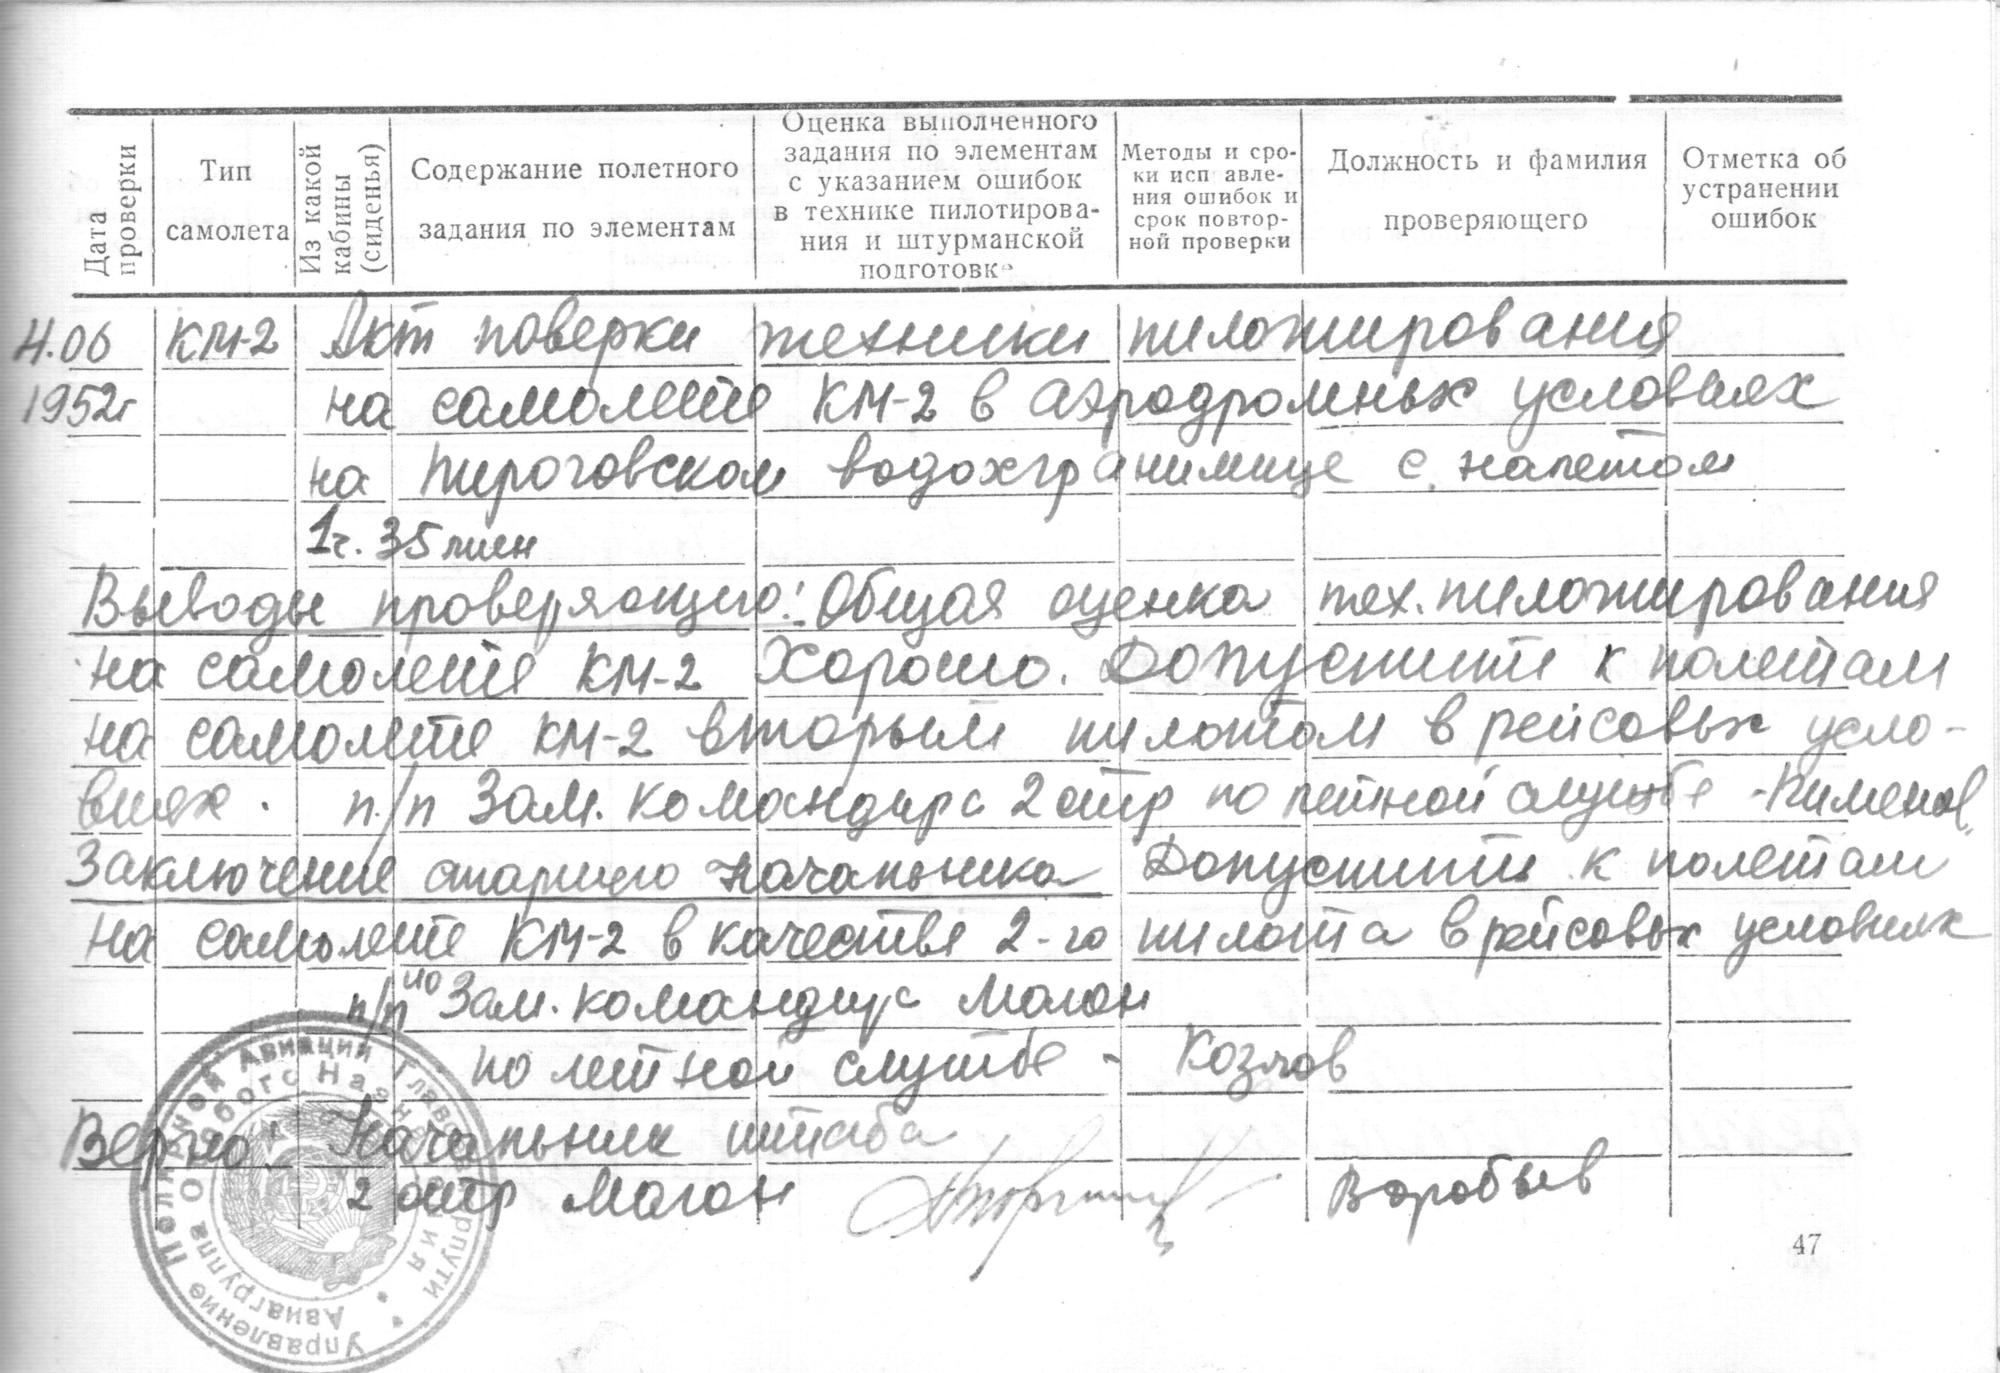 Дата проверки
Тип самолета
Из какой кабины (сиденья)
Содержание полетного задания по элементам
Оценка выполненного
задания по элементам
с указанием ошибок
в технике пилотирова-
ния и штурманской
подготовке
Методы и сро-
ки исп авле-
ния ошибок и
срок повтор-
ной проверки
Должность и фамилия
проверяющего
Отметка об
устранении
ошибок
4.06 КМ-2 Акт поверки техники пилотирования
1952г на самолете КМ-2 в аэродромных условиях
на Пироговском водохгранимище с налетом
1ч. 35 мин
Выводы проверяющего: Общая оценка тех. пилотирования
на самолете КМ-2 Хорошо. Допустить к полетам
на самолете КМ-2 вторым пилотом в рейсовых усло-
виях. п/п Зам. командира 2 отр по летной службе - Пименов
Заключение старшего начальника Допустить к полетам
на самолете КМ-2 в качестве 2-го пилота в рейсовых условиях
п/п ио Зам. командира Магон
по летной службе - Козлов
Верно: Начальник штаба
2 отр Магон Воробьев
Управление Полярной Авиации Главсевморпути
Авиагруппа Особого Назначения
47